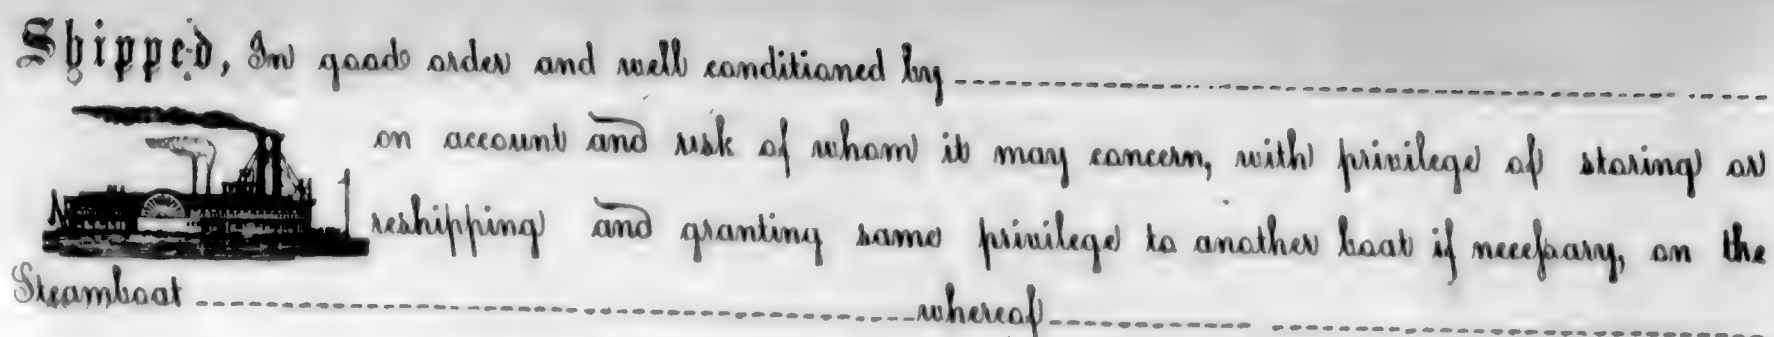 Shipped, In good order and well conditioned by
on account and risk of whom it may concern, with privilege of storing or
reshipping and granting same privilege to another boat if neceſsary, on the
Steamboat whereof